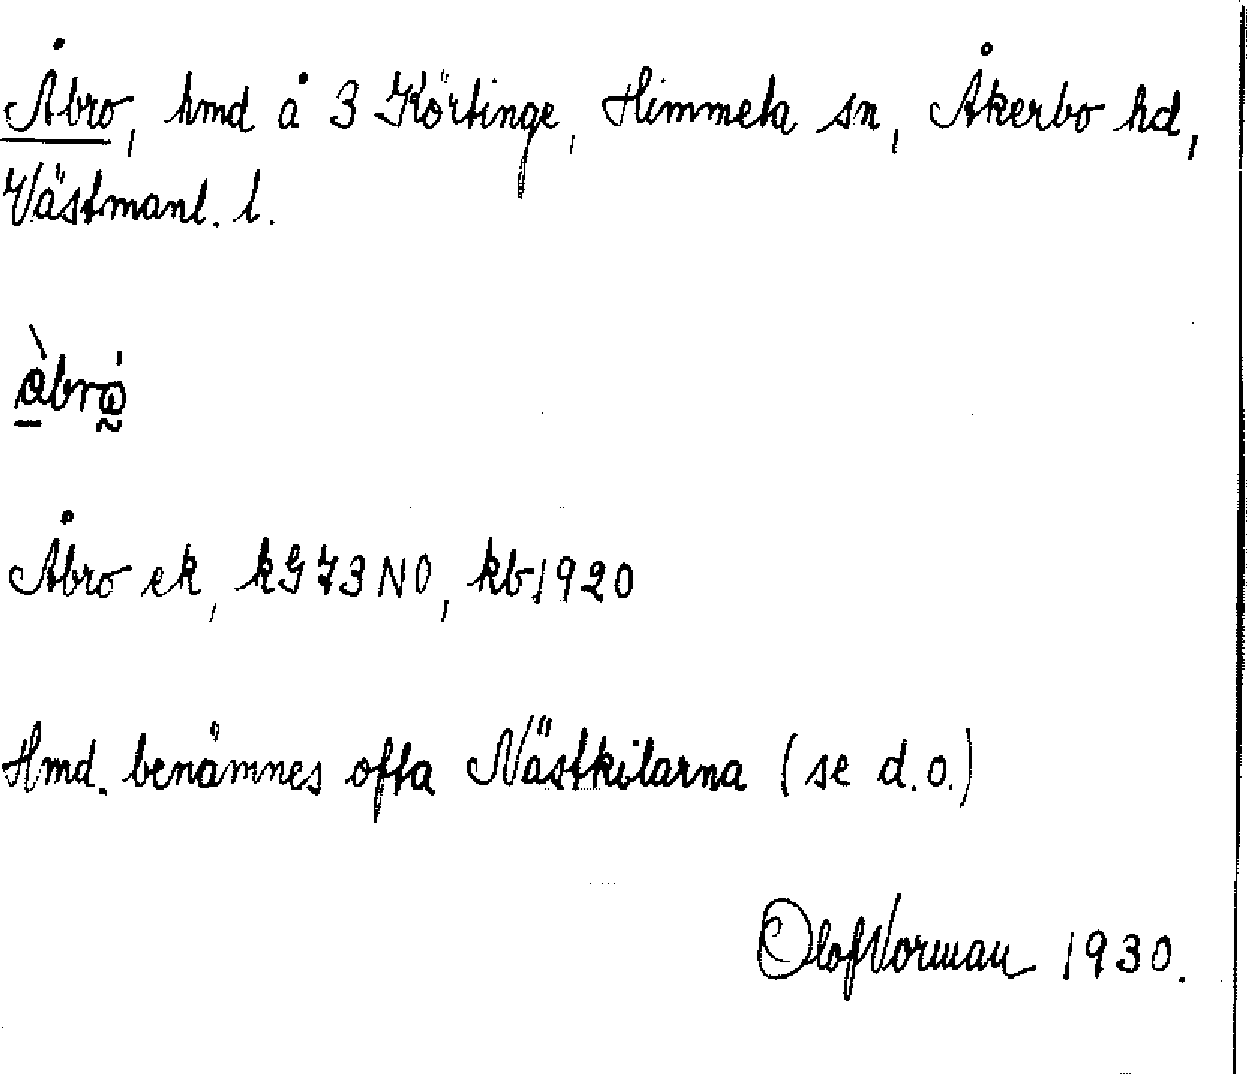 Åbro, hmd å 3 Körtinge, Himmeta sn, Åkerbo hd,
Västmanl. l.
åbrω
Åbro ek, kG73NO, kb1920
Hmd. benämnes ofta Nästkilarna (se d.o.)
Olof Vorman 1930.